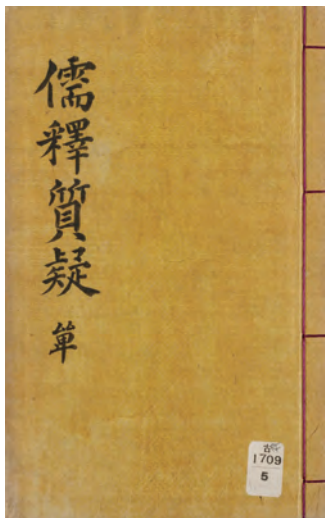 儒釋質疑
單
古
1709
5